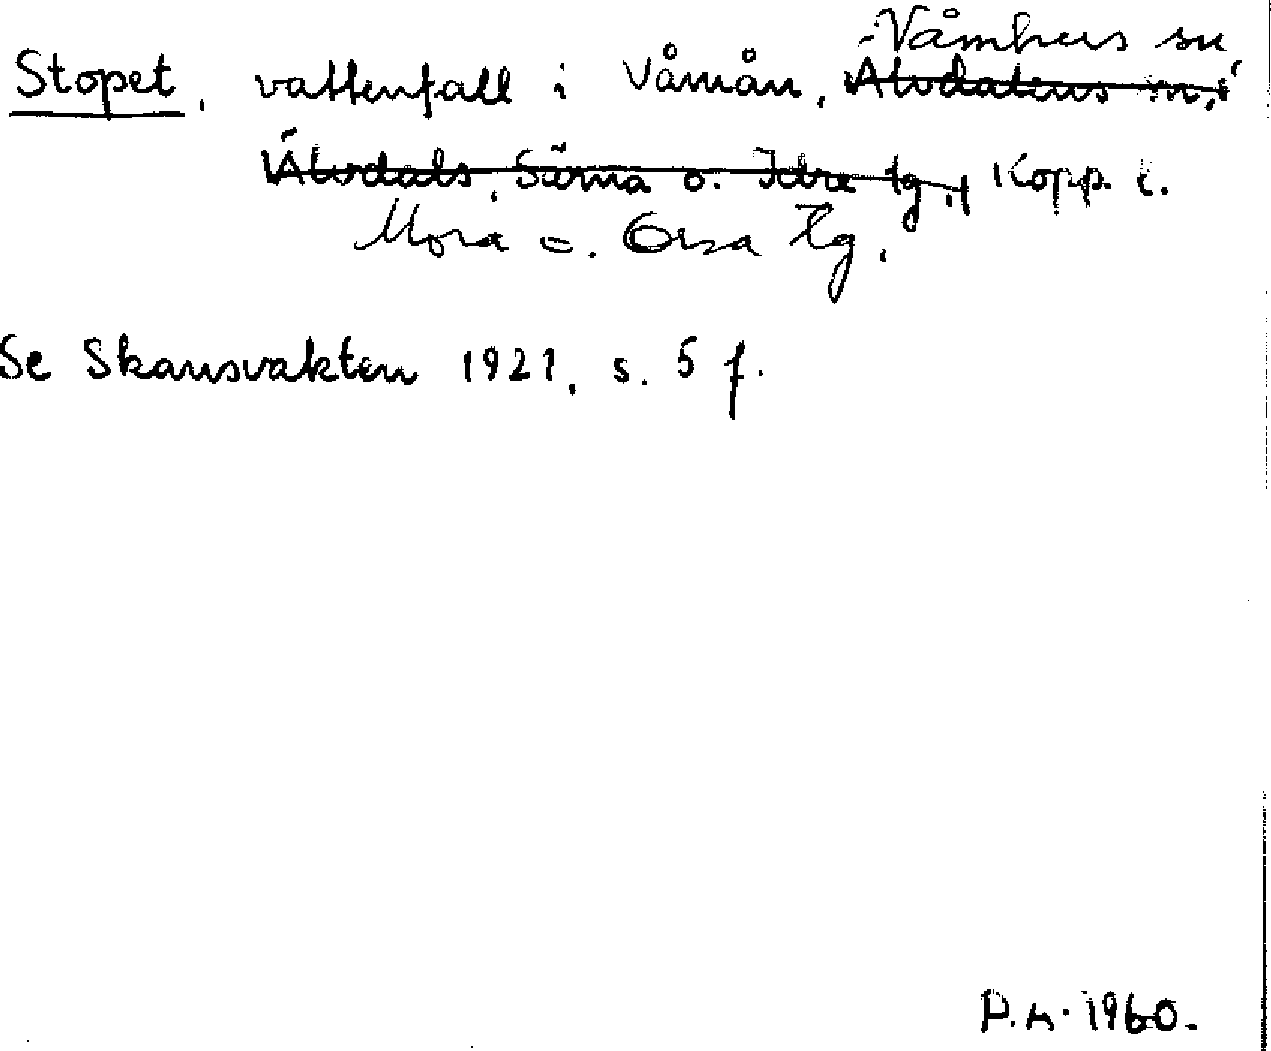 Våmhus sn
Stopet, vattenfall i Våmån, Älvdalens sn,
Älvdals, Särna o. Idre tg., Kopp. l.
Mora o. Orsa tg.
Se Skansvakten 1921, s. 5 f.
P.A. 1960.